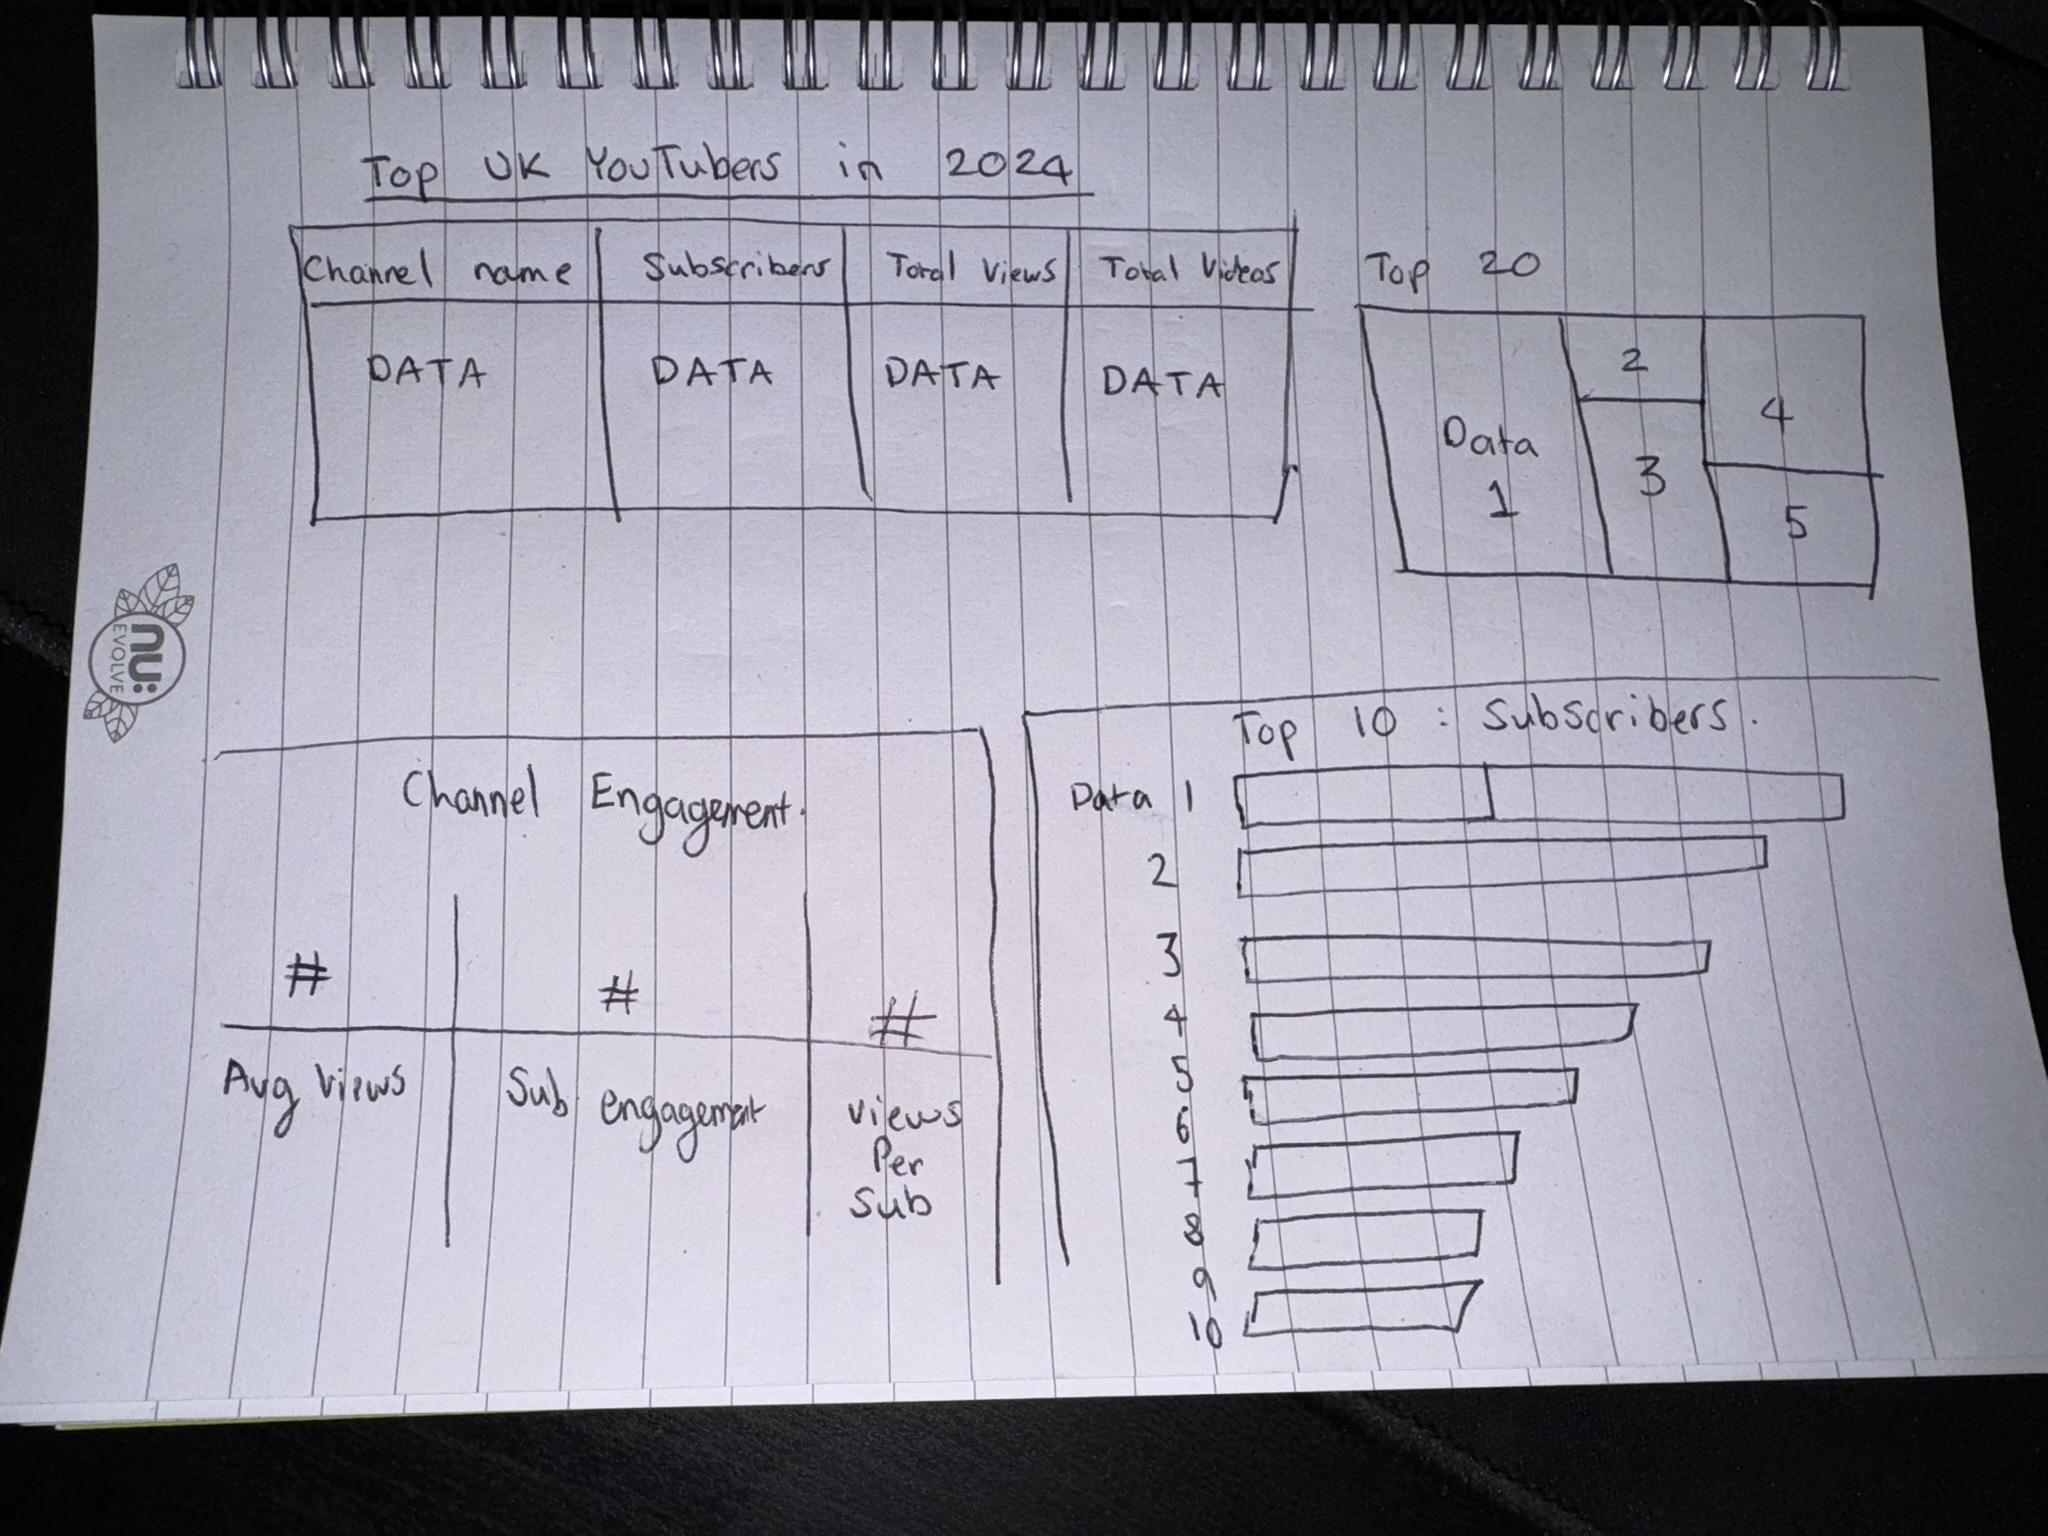 Top UK YouTubers in 2024
Channel name Subscribers Total Views Total Videos
DATA DATA DATA DATA
Top 20
Data
1
2
3
4
5
nu:
EVOLVE
Channel Engagement.
# # #
Avg Views Sub engagement views
Per
Sub
Top 10 : Subscribers.
Data 1
2
3
4
5
6
7
8
9
10